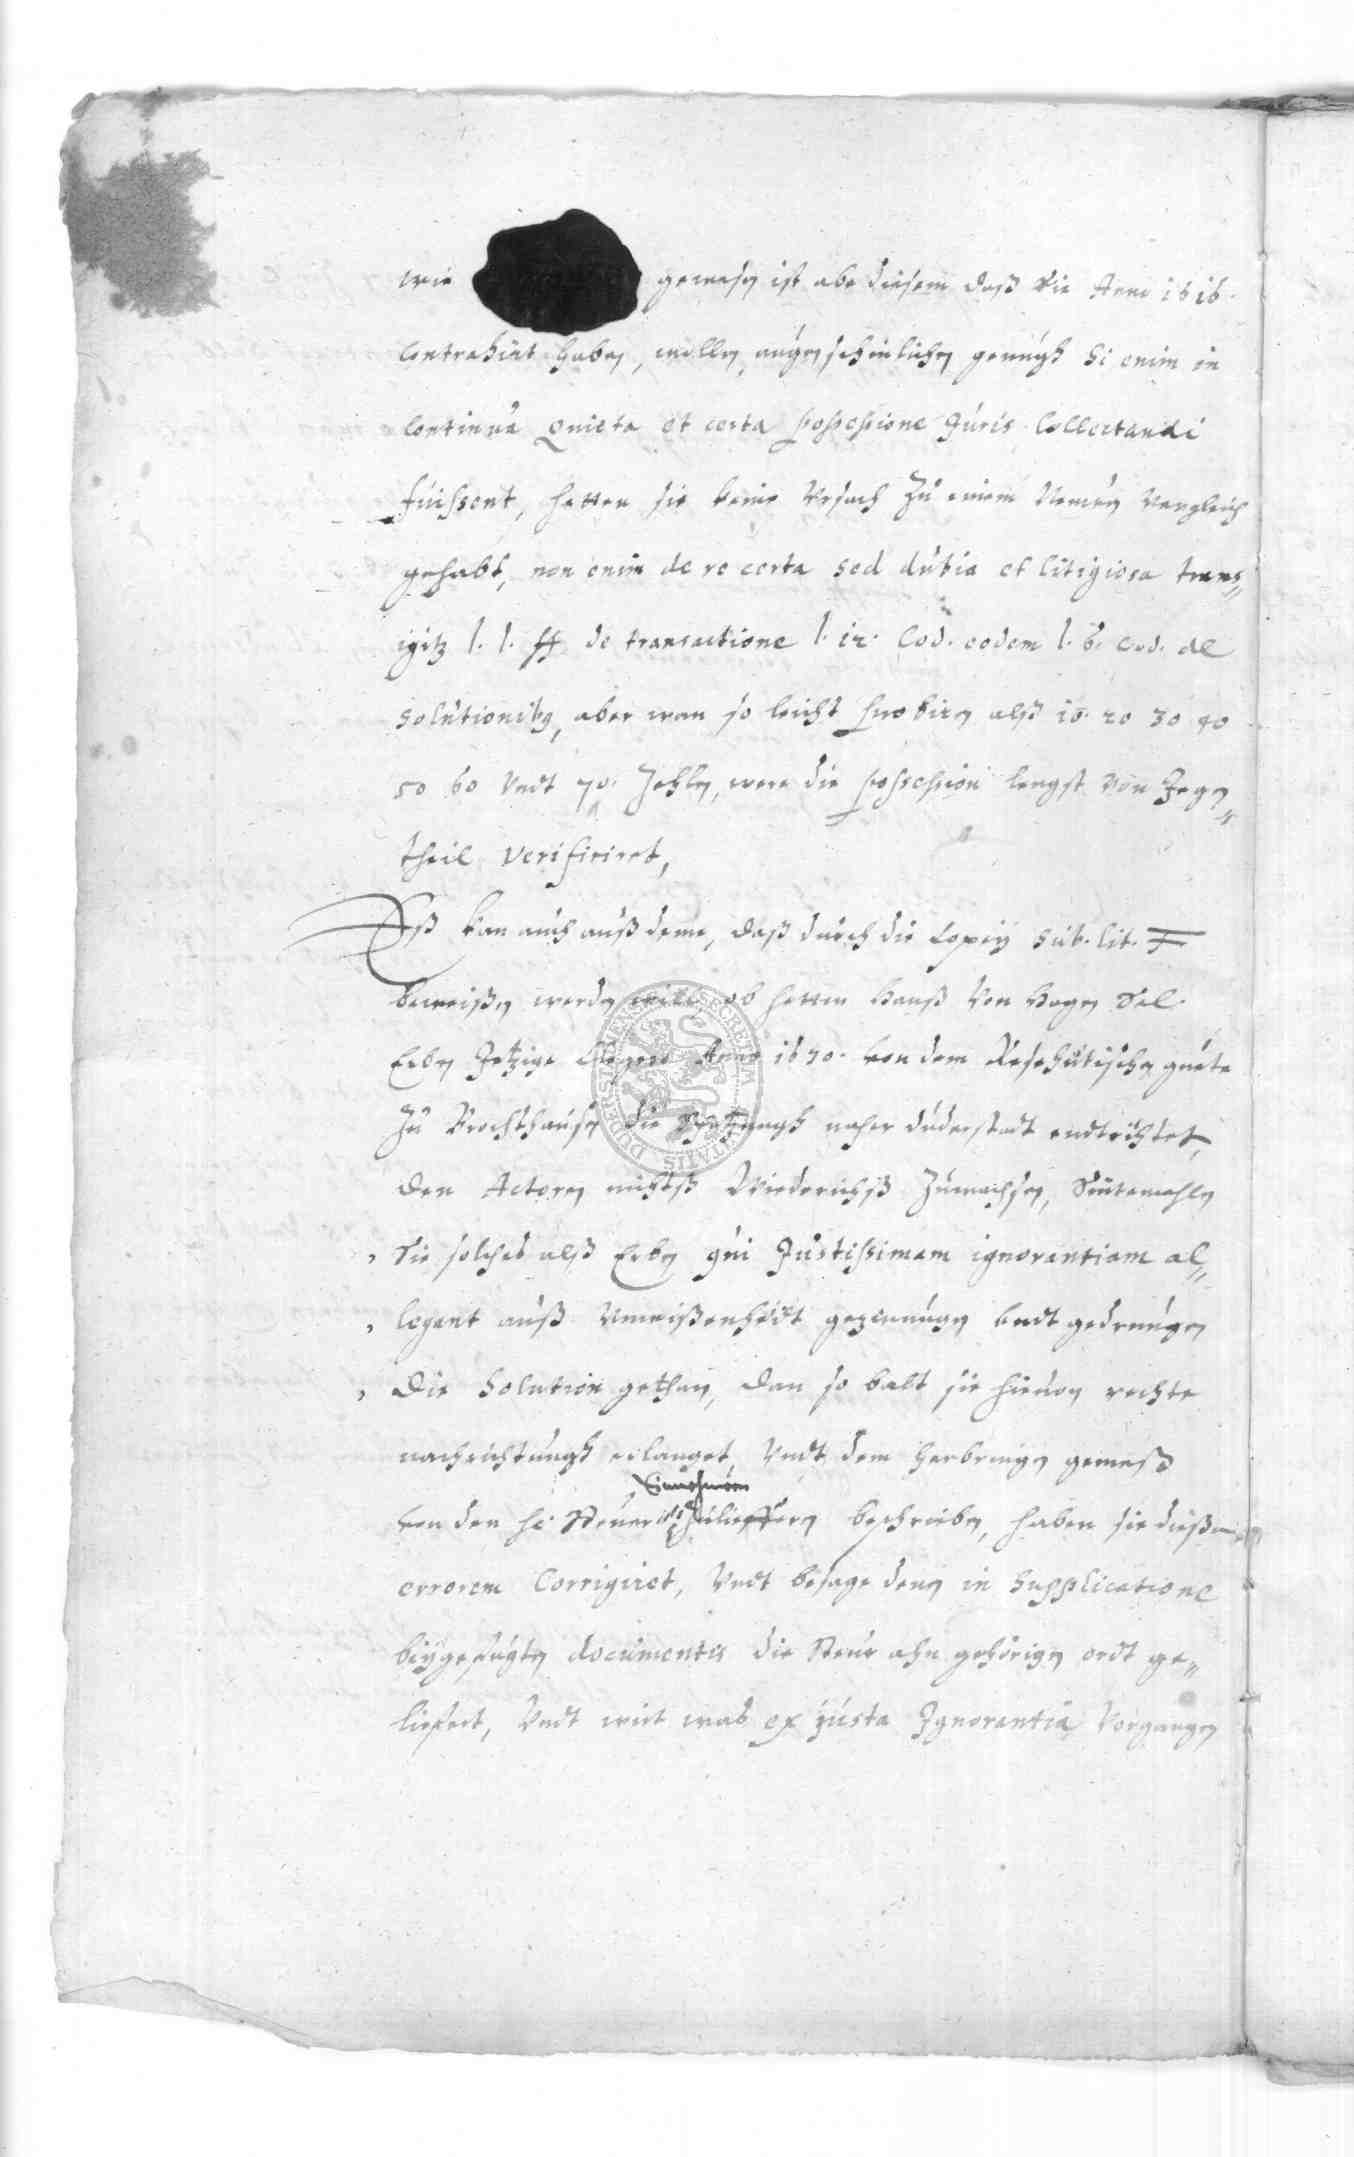 wie gewesen ist abe diesem daß sie Anno 1616.
contrahirt haben, wollen, augenscheinlichen genugh si enim in
continua quieta et certa possessione Juris Collectandi
fuissent, hetten sie keine Vrsach Zu einem Newen Vergleich
gehabt, non enim de re certa sed dubia et litigiosa trans„
igitur l. l. ff de transactione l. 12. Cod. eodem l. 6. Cod. de
solutionibus, aber wan so leicht probiren alß 10. 20 30 40
50 60 Vndt 70. Zehlen, were die possession lengst von Gegen„
theil verificiret,
Eß kan auch auß deme, daß durch die Copey sub. lit. F
beweißen werden will, ob hetten Hanß Von Hagen Sel.
Erben Jetzige Klegere Anno 1630. von dem guete
Zu Brochthausen die naher duderstadt endtrichtet,
den Actoren nichtß Wiederichß Zuwachsen, Sintemahlen
Sie solches alß Erben qui Justissimam ignorantiam al„
legant auß Vnwißenheidt gezwungen vndt gedrungen
die Solution gethan, dan so balt sie hieuon rechte
nachrichtungh erlanget, Vndt dem herbringen gemeß
Einnehmern
von den hr Steuer beschrieben, haben sie dießen
errorem Corrigiret, Vndt besage denen in Supplicatione
beygefugten documentis die Steur ahn gehörigen ordt ge„
liefert, Vndt wirt was ex justa Ignorantia Vorgangen
DUDERSTADIENSE SECRETUM CIVITATIS